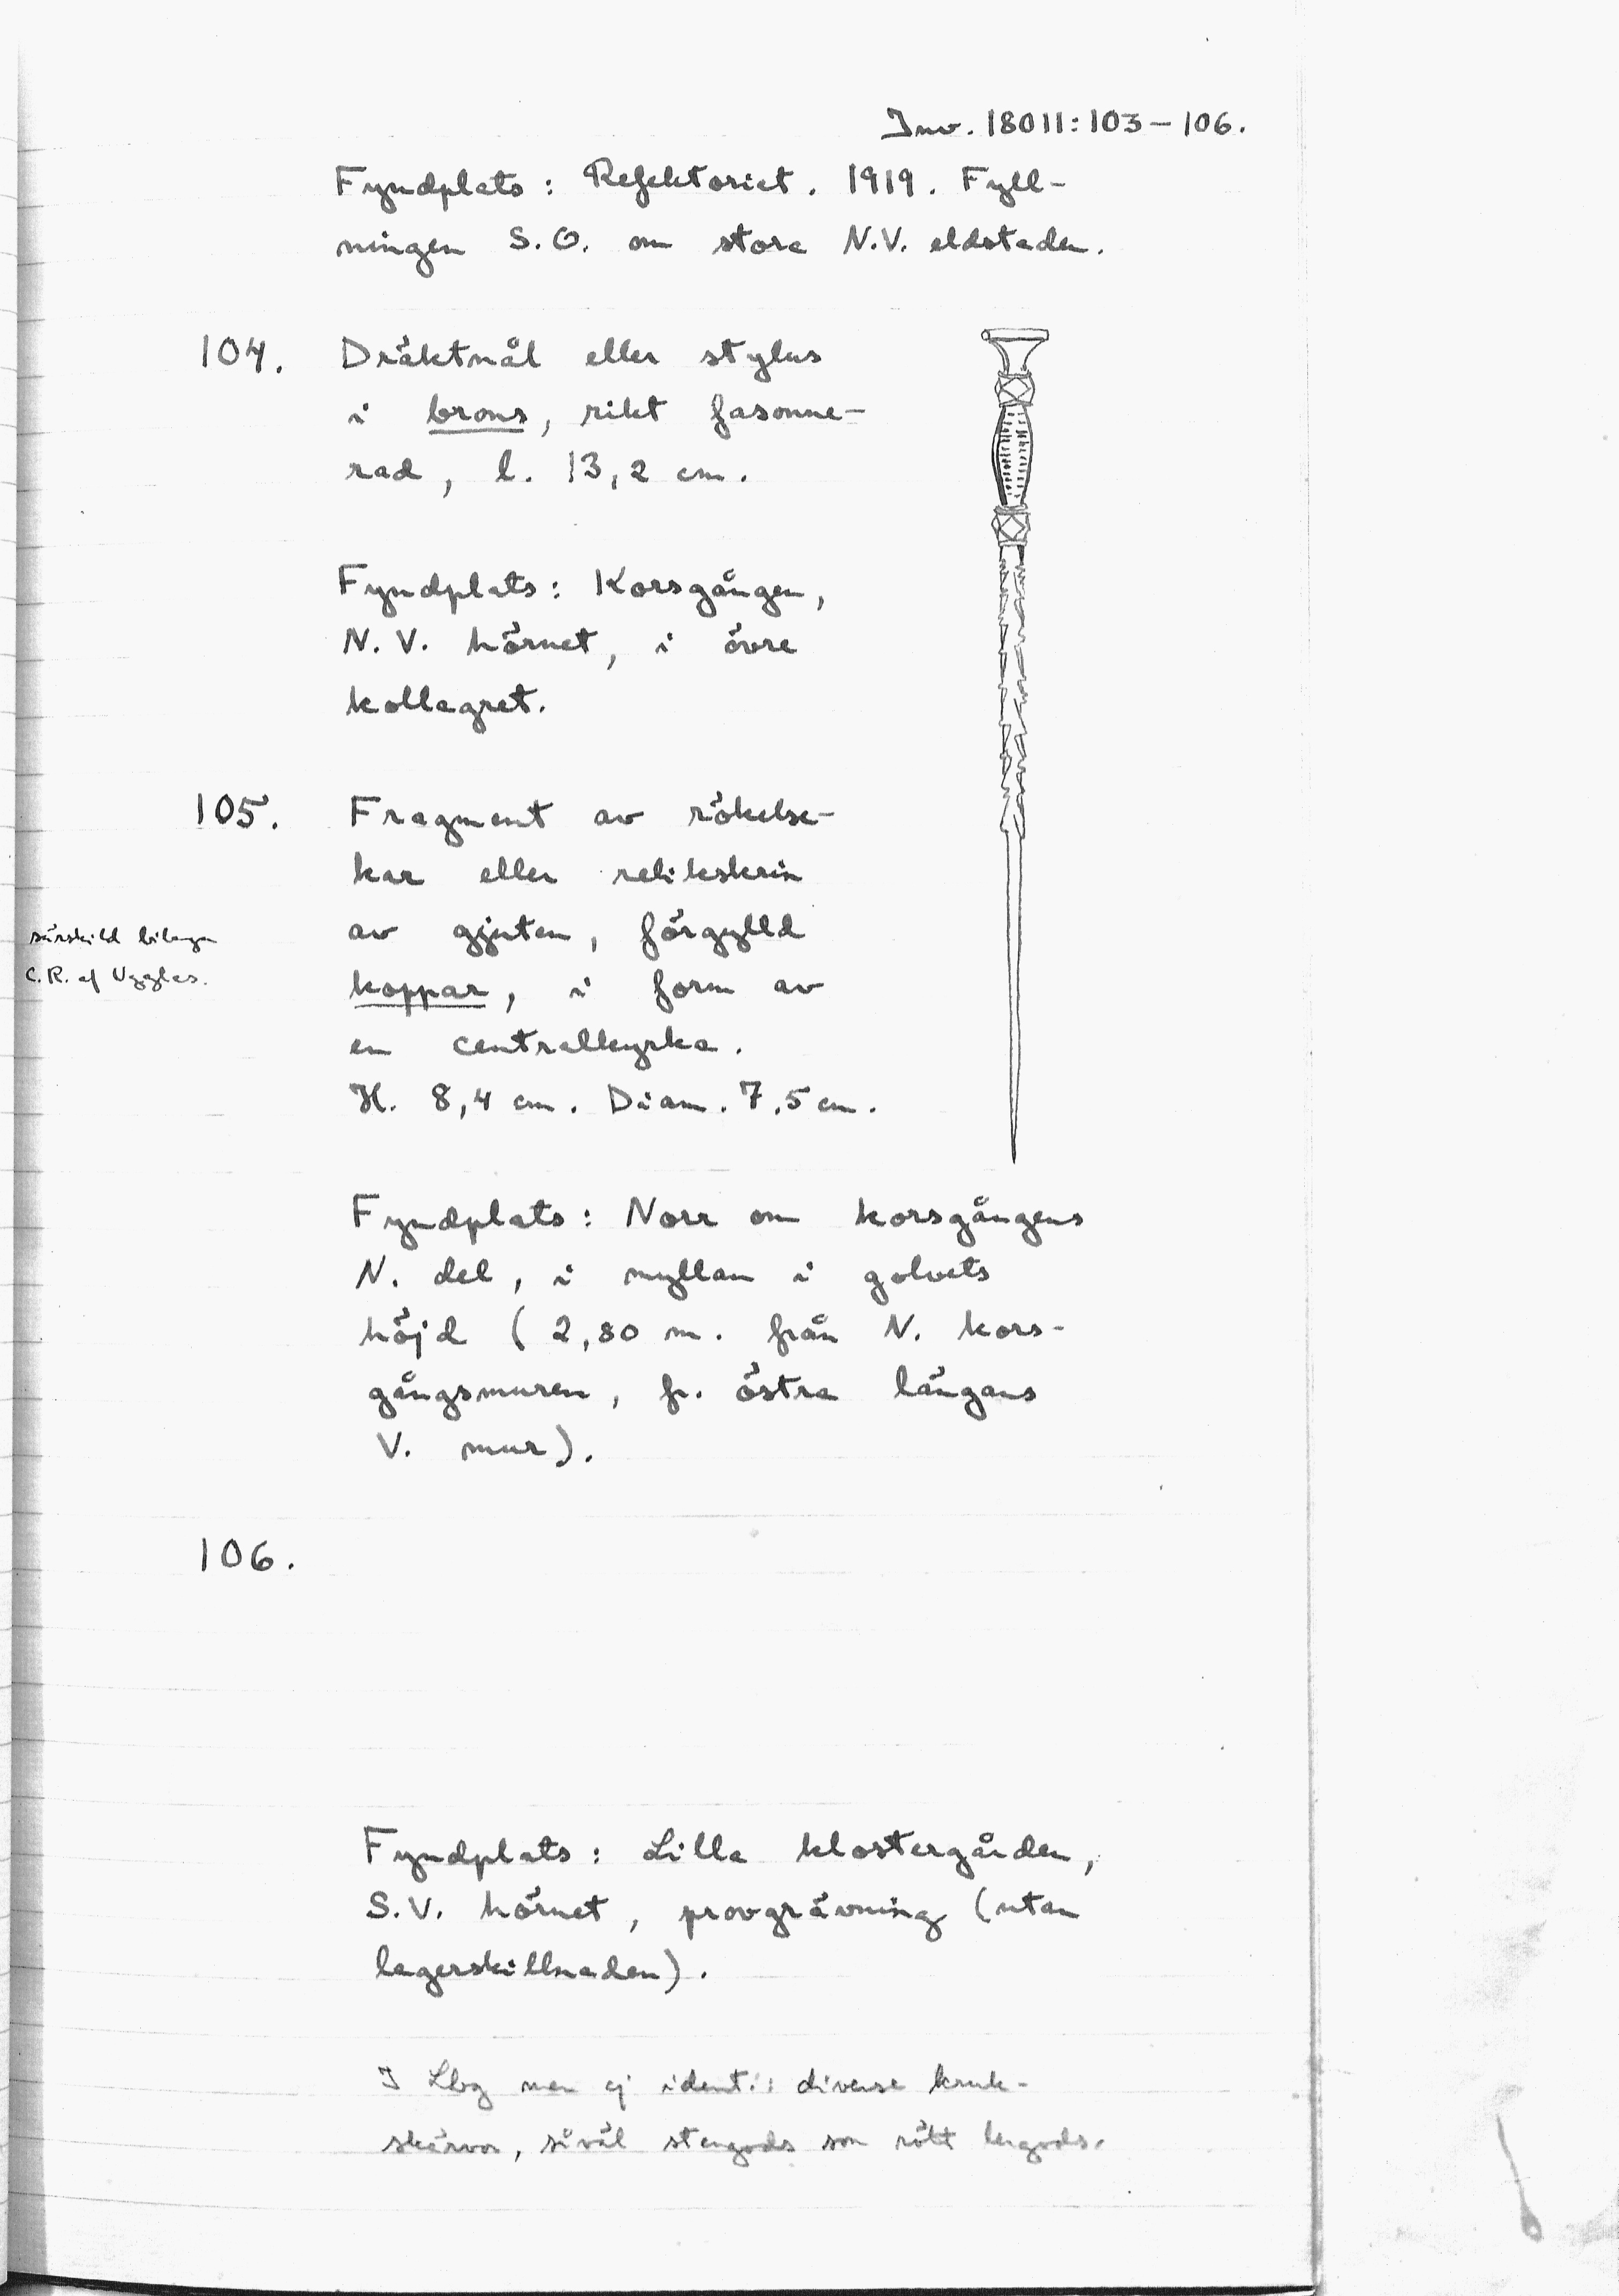 Inv. 18011:103–106.
Fyndplats: Refektoriet. 1919. Fyll-
ningen S.O. om stora N.V. eldstaden.
104. Dräktnål eller stylus
i brons, rikt fasonne-
rad, l. 13,2 cm.
Fyndplats: Korsgången,
N.V. hörnet, i övre
kollagret.
105. Fragment av rökelse-
kar eller relikskrin
särskild bilaga
av gjuten, förgylld
C.R. af Ugglas.
koppar, i form av
en centralkyrka.
H. 8,4 cm. Diam. 7,5 cm.
Fyndplats: Norr om korsgångens
N. del, i myllan i golvets
höjd (2,80 m. från N. kors-
gångsmuren, fr. östra längans
V. mur).
106.
Fyndplats: Lilla klostergården,
S.V. hörnet, provgrävning (utan
lagerskillnaden).
I Lbg men ej ident.: diverse kruk-
skärvor, såväl stengods som rött lergods.